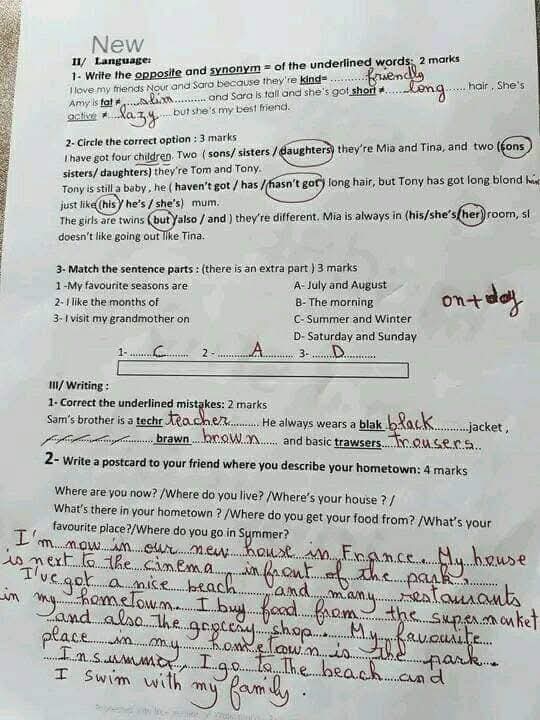 New
II/ Language:
1- Write the opposite and synonym = of the underlined words: 2 marks
I love my friends Nour and Sara because they're kind= ............friendly
Amy is fat ≠....slim............ and Sara is tall and she's got short ≠......long........ hair . She's
active ≠...lazy.... but she's my best friend.
2- Circle the correct option : 3 marks
I have got four children. Two ( sons/ sisters / daughters) they're Mia and Tina, and two (sons
sisters/ daughters) they're Tom and Tony.
Tony is still a baby , he ( haven't got / has / hasn't got) long hair, but Tony has got long blond hair
just like (his / he's / she's) mum.
The girls are twins (but /also / and ) they're different. Mia is always in (his/she's/her) room, sl
doesn't like going out like Tina.
3- Match the sentence parts : (there is an extra part ) 3 marks
1 -My favourite seasons are A- July and August
2- I like the months of B- The morning
3- I visit my grandmother on C- Summer and Winter
on + day
D- Saturday and Sunday
1- ......C......... 2 - ...........A......... 3- ......D............
III/ Writing :
1- Correct the underlined mistakes: 2 marks
Sam's brother is a techr teacher.......... He always wears a blak black...........jacket ,
........................ brawn ...brown...... and basic trawsers....trousers..
2- Write a postcard to your friend where you describe your hometown: 4 marks
Where are you now? /Where do you live? /Where's your house ? /
What's there in your hometown ? /Where do you get your food from? /What's your
favourite place?/Where do you go in Summer?
I'm now in our new house in France. My house
is next to the cinema in front of the park.
I've got a nice beach and many restaurants
in my hometown. I buy food from the supermarket
and also the grocery shop. My favourite
place in my hometown is the park.
In summer, I go to the beach and
I swim with my family.